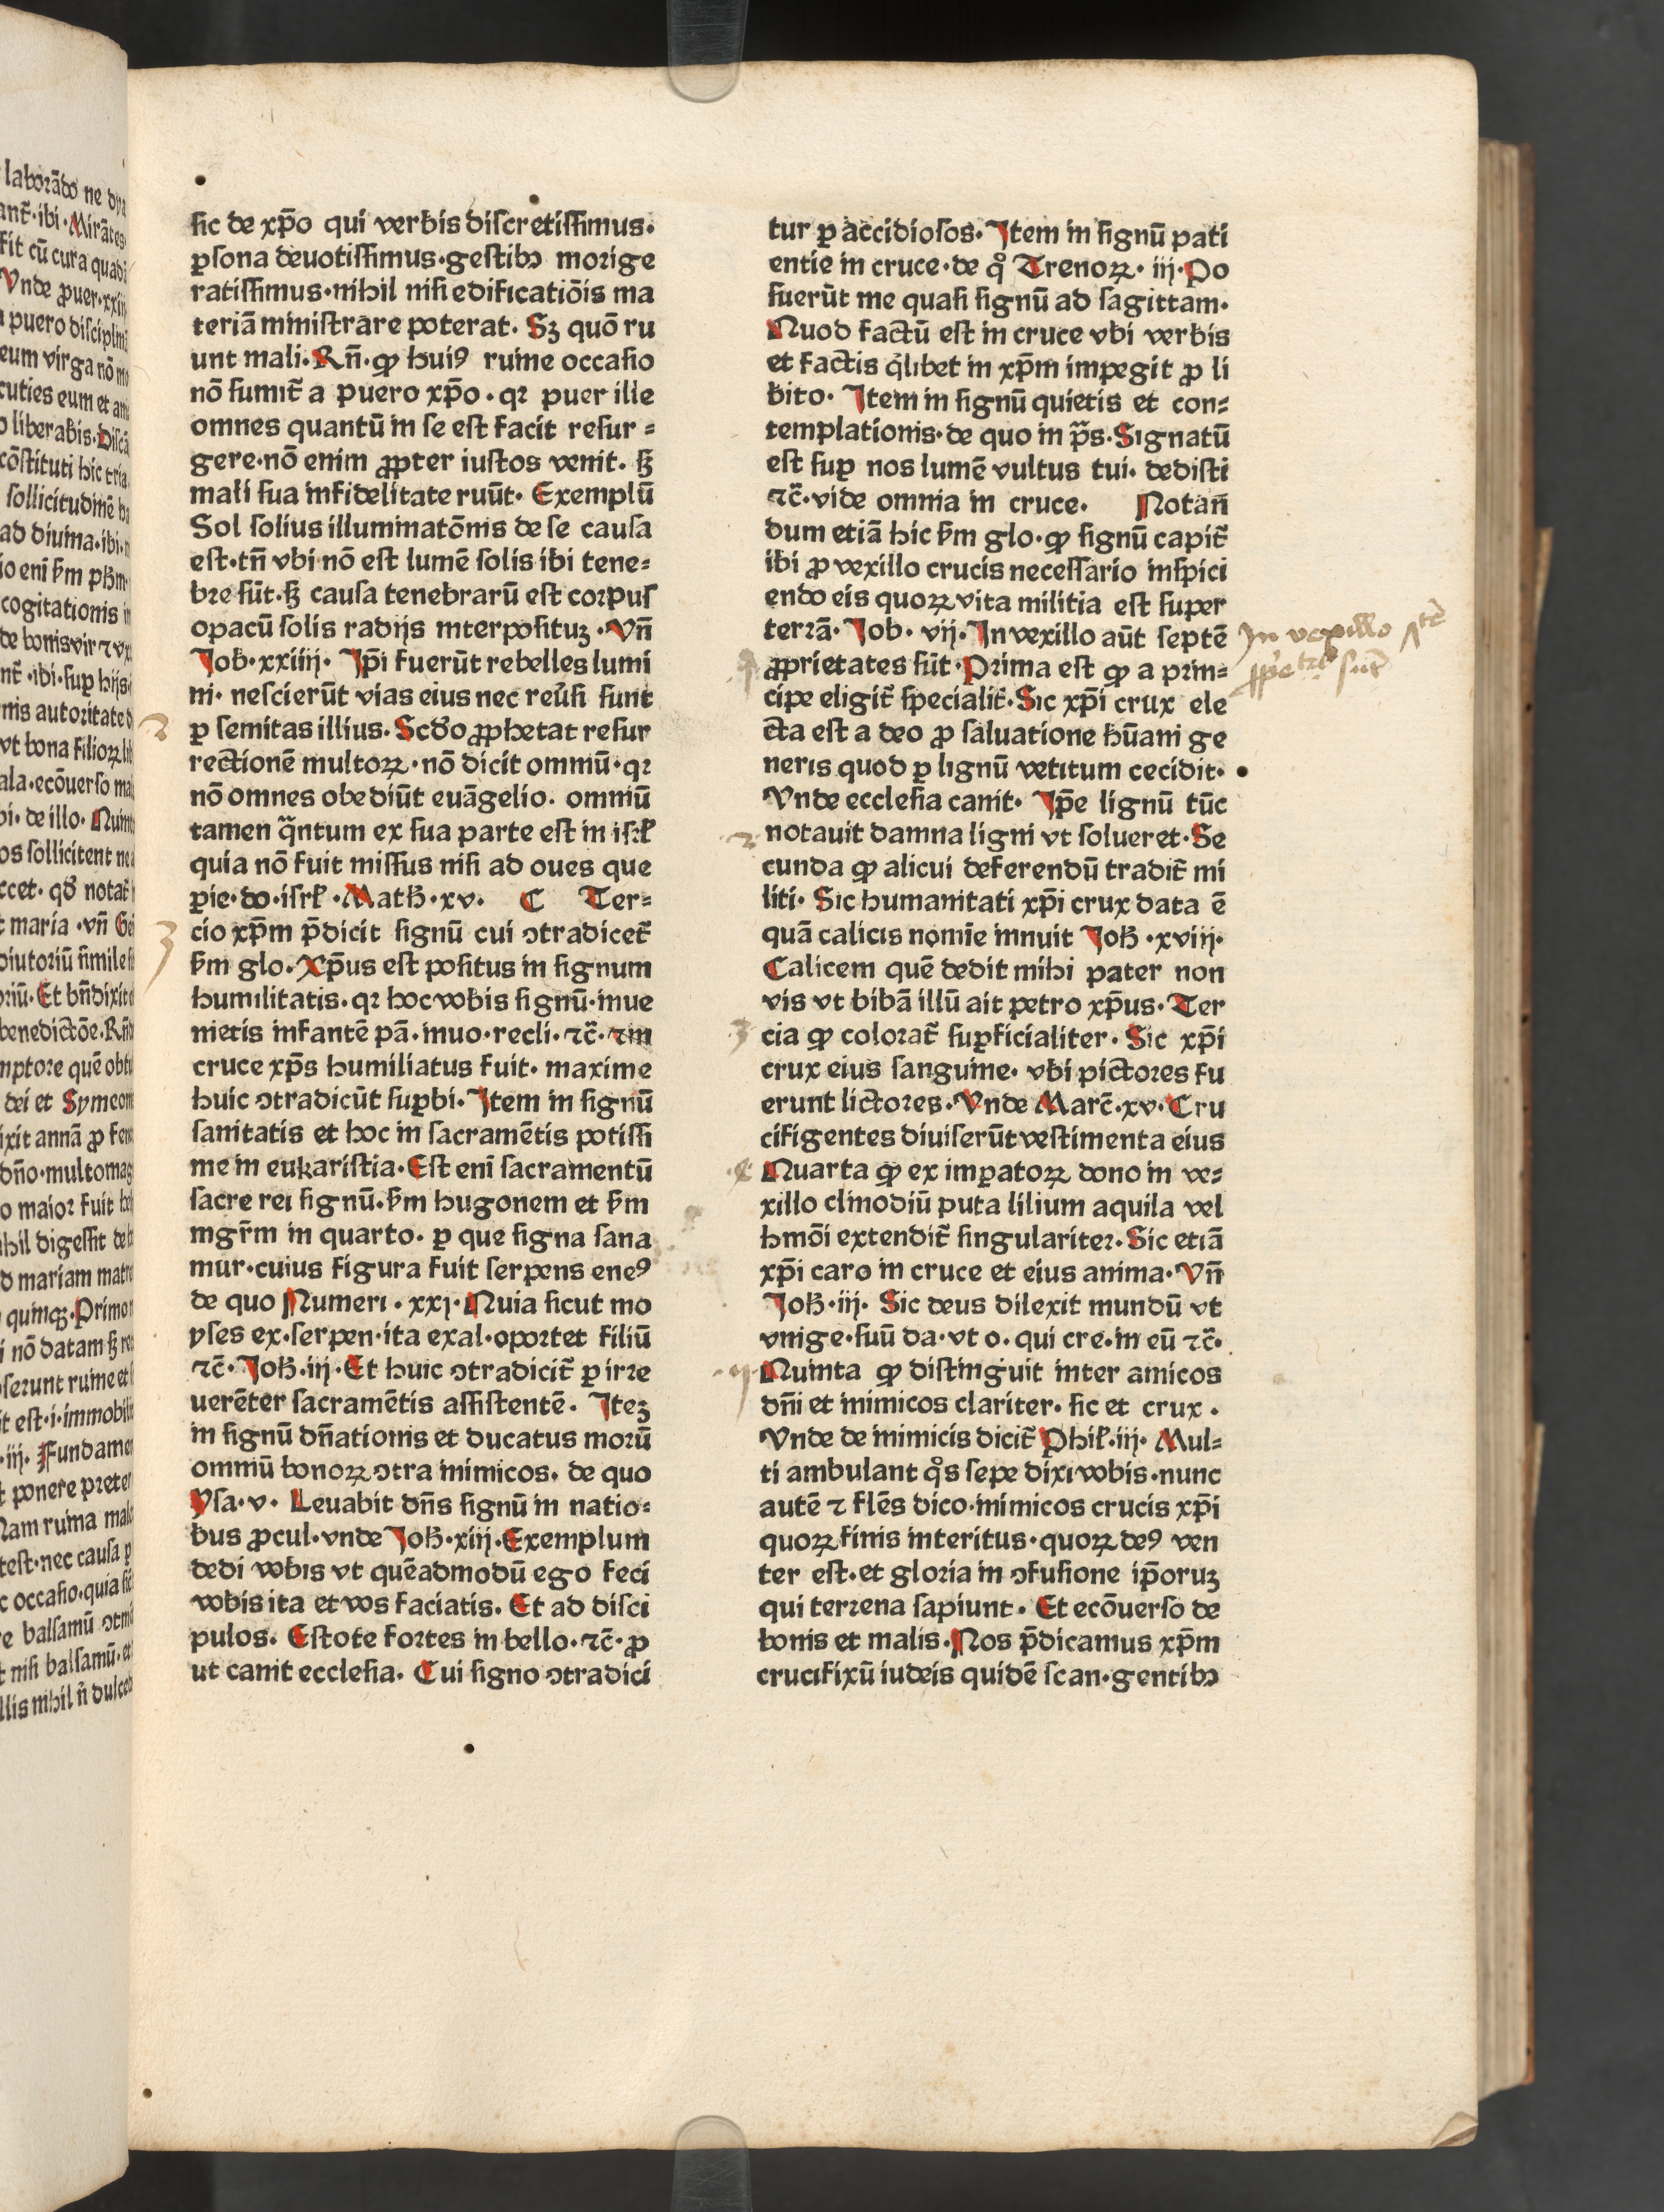 sic de xp̄o qui verbis discretissimus.
ꝑsona deuotissimus·gestibꝫ morige
ratissimus·nihil nisi edificatiōis ma
teriā ministrare poterat. Sꝫ quō ru
unt mali·Rn̄·ꝙ huiꝰ ruine occasio
nō sumit̄ a puero xp̄o·qꝛ puer ille
omnes quantū in se est facit resur⸗
gere·nō enim ꝓpter iustos venit. sꝫ
mali sua infidelitate ruūt· Exemplū
Sol solius illuminatōnis de se causa
est·tn̄ vbi nō est lumē solis ibi tene⸗
bre sūt·sꝫ causa tenebrarū est corpus
opacū solis radijs interposituꝫ·Vn̄
Job·xxiiij· Jp̄i fuerūt rebelles lumi
ni· nescierūt vias eius nec reu̓si sunt
ꝑ semitas illius·Scd̓o ꝓphetat resur
rectionē multoꝝ·nō dicit omniū·qꝛ
nō omnes obediūt euāgelio. omniū
tamen qᷓntum ex sua parte est in isrł
quia nō fuit missus nisi ad oues que
ꝑie·do·isrł·Math̄·xv· C Ter⸗
cio xp̄m p̄dicit signū cui ↄtradicet̄
ẜm glo·Xp̄us est positus in signum
humilitatis·qꝛ hoc vobis signū·inue
nietis infantē pā·inuo·recli·ꝛc̄·ꝛ in
cruce xp̄s humiliatus fuit· maxime
huic ↄtradicūt suꝑbi·Jtem in signū
sanitatis et hoc in sacramētis potissi
me in eukaristia·Est enī sacramentū
sacre rei signū·ẜm hugonem et ẜm
mgr̄m in quarto· ꝑ que signa sana
mur·cuius figura fuit serpens eneꝰ
de quo Numeri·xxj·Quia sicut mo
yses ex·serpen·ita exal·oportet filiū
ꝛc̄·Joh̄·iij·Et huic ↄtradicit̄ ꝑ irre
uerēter sacramētis assistentē· Jteꝫ
in signū dn̄ationis et ducatus morū
omniū bonoꝝ ↄtra inimicos· de quo
Ysa·v· Leuabit dn̄s signū in natio⸗
bus ꝓcul·vnde Joh̄·xiij·Exemplum
dedi vobis vt quēadmodū ego feci
vobis ita et vos faciatis. Et ad disci
pulos. Estote fortes in bello·ꝛc̄·ꝓ
ut canit ecclesia. Cui signo ↄtradici
tur ꝑ accidiosos·Jtem in signū pati
entie in cruce·de qͦ Trenoꝝ· iij·Po
suerūt me quasi signū ad sagittam·
Quod factū est in cruce vbi verbis
et factis qͥlibet in xp̄m impegit ꝓ li
bito· Jtem in signū quietis et con⸗
templationis·de quo in pᷓs·Signatū
est suꝑ nos lumē vultus tui· dedisti
ꝛc̄·vide omnia in cruce· Notan̄
dum etiā hic ẜm glo·ꝙ signū capit̄
ibi ꝓ vexillo crucis necessario inspici
endo eis quoꝝ vita militia est super
terrā· Job· vij·In vexillo aūt septē
ꝓprietates sūt·Prima est ꝙ a prin⸗
cipe eligit̄ specialit̄·Sic xp̄i crux ele
cta est a deo ꝓ saluatione hūani ge
neris quod ꝑ lignū vetitum cecidit·
Vnde ecclesia canit· Jp̄e lignū tūc
notauit damna ligni vt solueret·Se
cunda ꝙ alicui deferendū tradit̄ mi
liti· Sic humanitati xp̄i crux data ē
quā calicis nomīe innuit Joh̄·xviij·
Calicem quē dedit mihi pater non
vis vt bibā illū ait petro xp̄us· Ter
cia ꝙ colorat̄ suꝑficialiter· Sic xp̄i
crux eius sanguine· vbi pictores fu
erunt lictores·Vnde Marc̄·xv·Cru
cifigentes diuiserūt vestimenta eius
Quarta ꝙ ex imꝑatoꝝ dono in ve⸗
xillo clinodiū puta lilium aquila vel
hmōi extendit̄ singulariter·Sic etiā
xp̄i caro in cruce et eius anima·Vn̄
Joh̄·iij· Sic deus dilexit mundū vt
vnige·suū da·vt o·qui cre·in eū ꝛc̄·
Quinta ꝙ distinguit inter amicos
dn̄i et inimicos clariter· sic et crux·
Vnde de inimicis dicit̄ Phił·iij· Mul⸗
ti ambulant qͦs sepe dixi vobis·nunc
autē ꝛ flēs dico·inimicos crucis xp̄i
quoꝝ finis interitus·quoꝝ deꝰ ven
ter est·et gloria in ↄfusione ip̄oruꝫ
qui terrena sapiunt· Et ecōuerso de
bonis et malis·Nos p̄dicamus xp̄m
crucifixū iudeis quidē scan·gentibꝫ
In vexillo